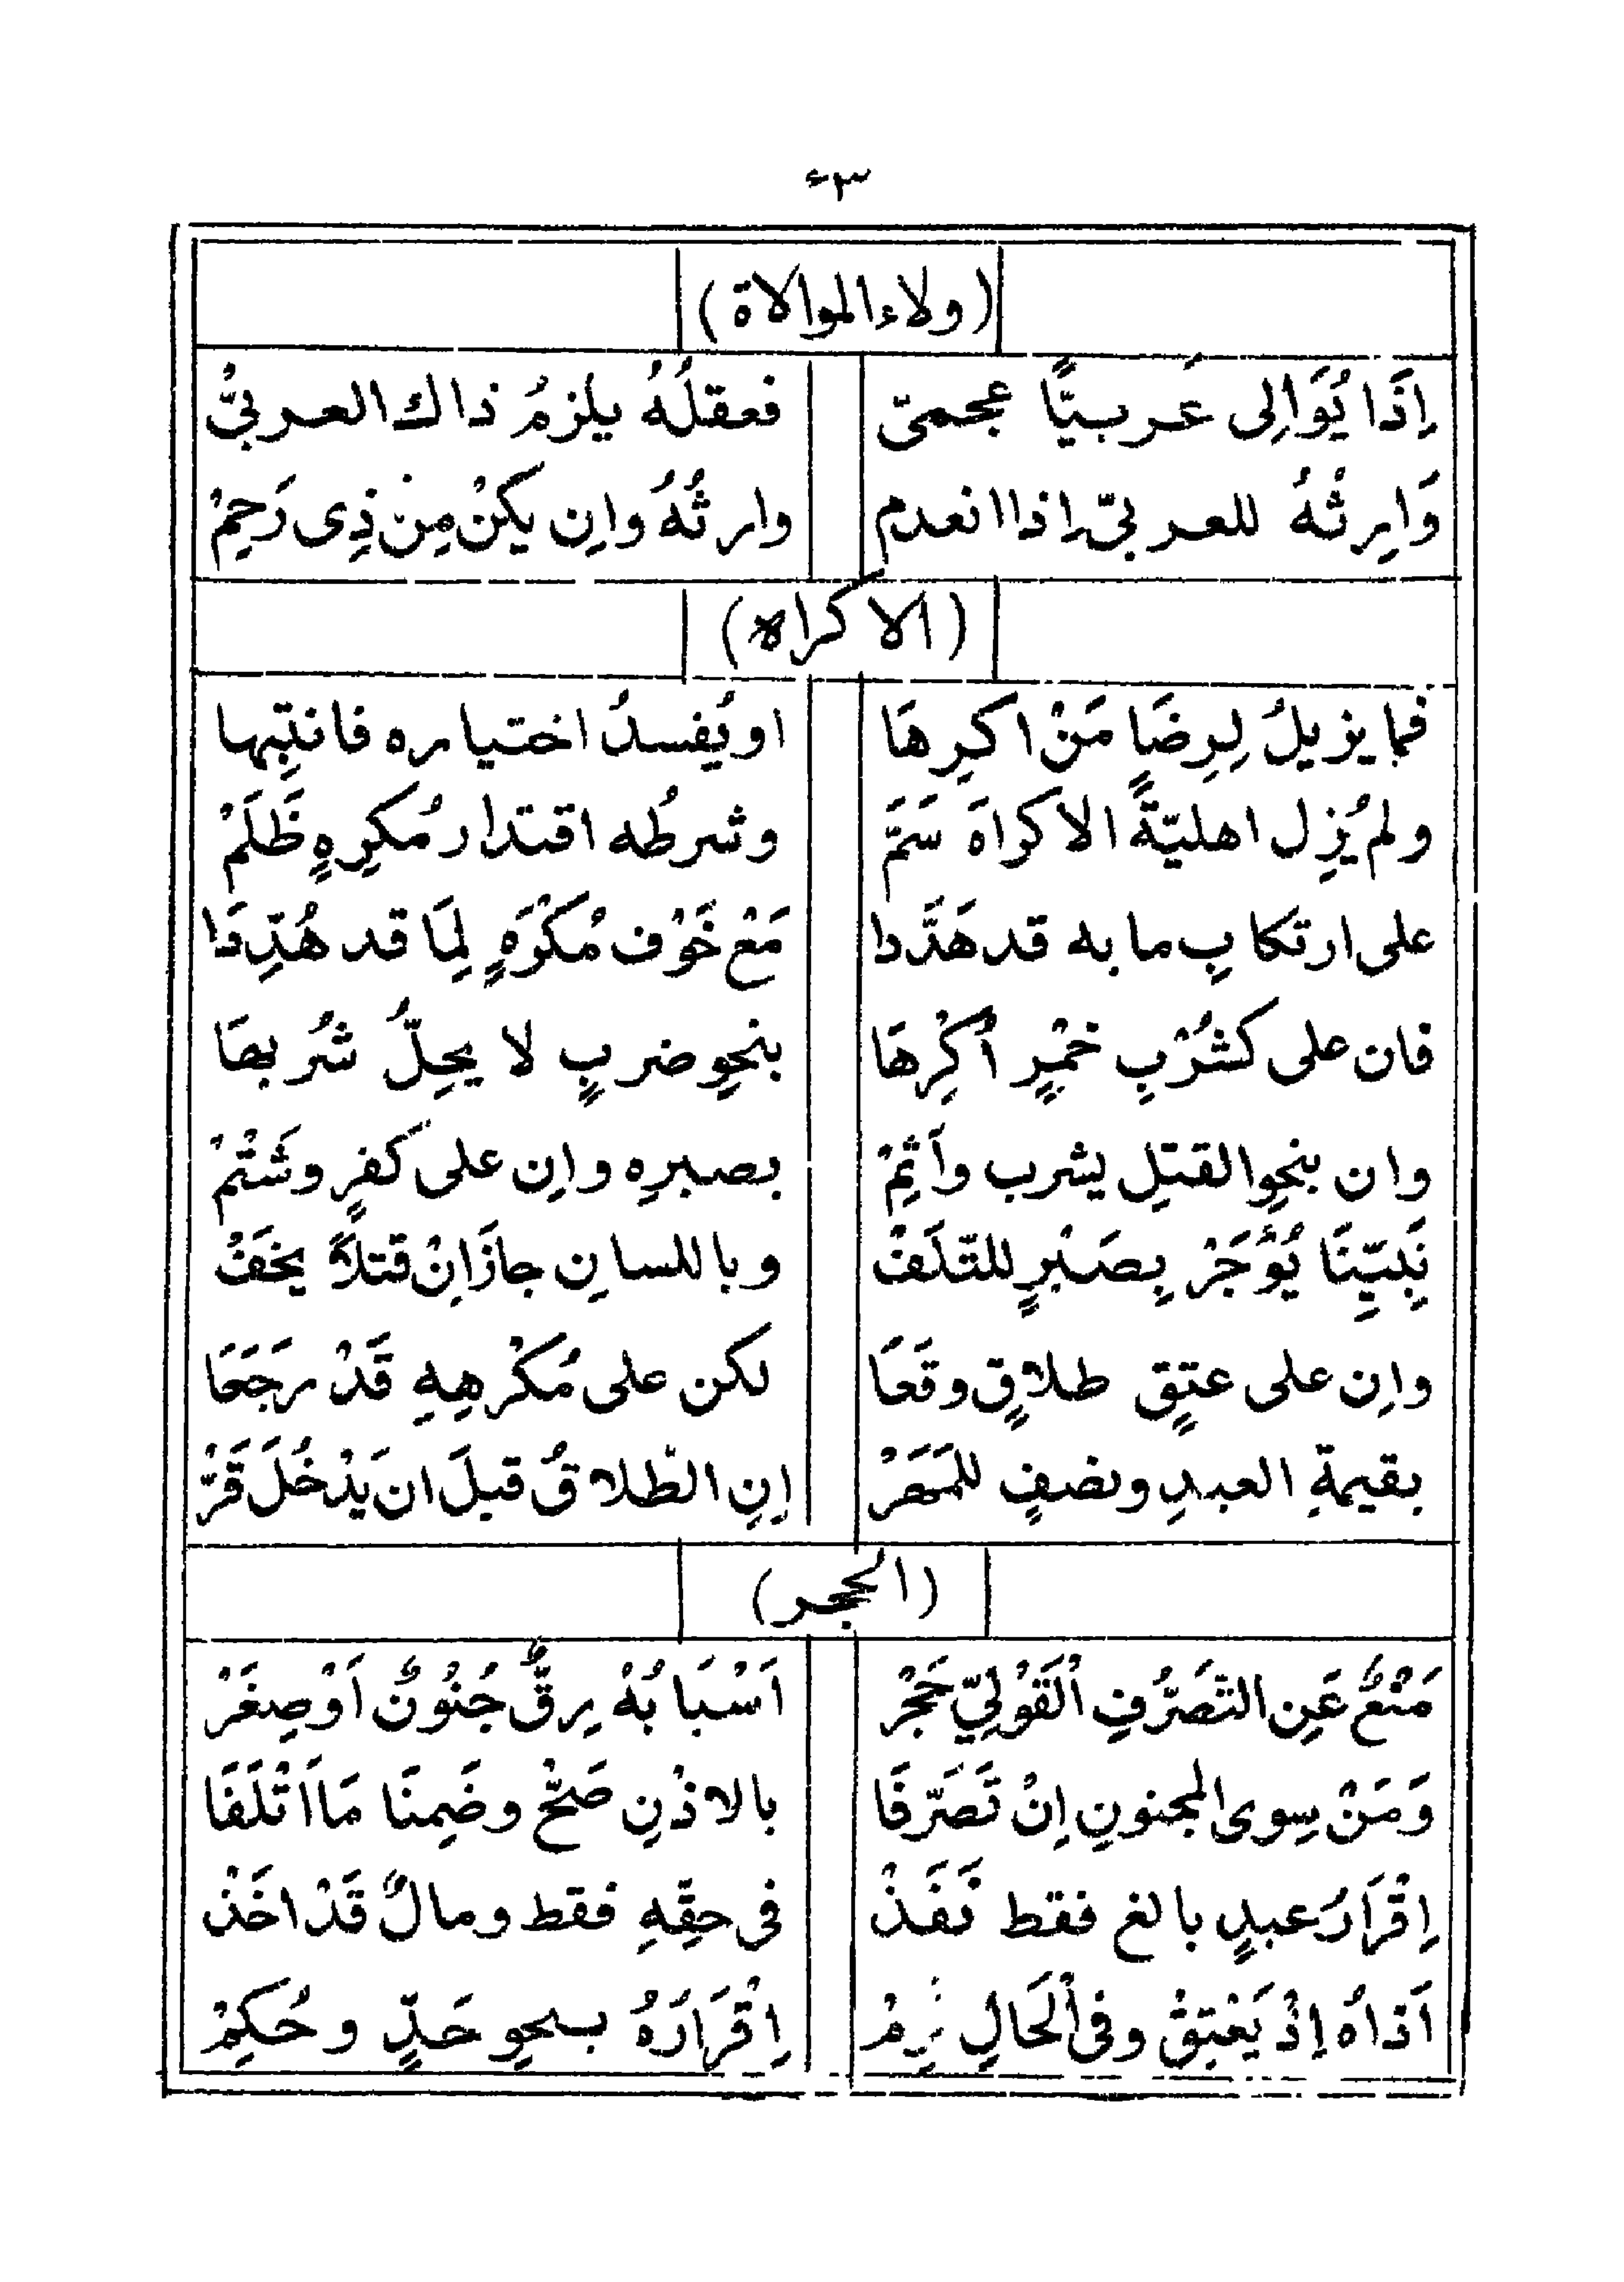 ٤٣
(ولاء الموالاة)
اِذَا يُوَالِى عَربيًّا عجمىّ فعقلُهُ يلزمُ ذاك العربىُّ
وَاِرثُهُ للعربىّ اِذا انعدم وارثُهُ واِن يكنْ مِنْ ذِى رَحِمْ
(الاكراه)
فما يزيلُ لِرِضَا مَنْ اكرِهَا او يُفسدُ اختياره فانتبِها
ولم يُزِل اهليّةً الاكراهَ سَمَّ وشرطُه اقتدار مُكرِهٍ ظَلَمْ
على ارتكابِ ما به قد هَدَّدا مَعْ خَوْف مُكْرَهٍ لِمَا قد هُدِّدَا
فان على كشُرْبِ خمْرٍ اُكْرِهَا بنحوِ ضربٍ لا يحِلُّ شُربهَا
وان بنحوِ القتلِ يشرب واَثِمْ بصبرِه واِن على كفرٍ وشَتْمْ
نَبِيِّنَا يُؤْجَرْ بِصَبْرٍ للتّلَفْ وباللسانِ جازَ اِنْ قتلاً يخَفْ
واِن على عتقٍ طلاقٍ وقعَا لكن على مُكْرهِهِ قَدْ رَجَعَا
بقيمةِ العبدِ ونصفٍ للمَهَرْ اِنِ الطّلاقُ قبلَ ان يَدْخُلَ قَرّْ
(الحجر)
مَنْعٌ عَنِ التَّصَرُّفِ اْلقَوْلِىِّ حَجْرْ اَسْبَابُهْ رِقٌّ جُنُونٌ اَوْ صِغَرْ
وَمَنْ سِوى المجنونِ اِنْ تَصَرَّفَا بالاذْنِ صَحّْ وضَمِنَا مَا اَتْلَفَا
اِقْرَارُ عبدٍ بالغ فقط نَفَذْ فى حقِّهِ فقط ومالٌ قَدْ اخَذْ
اَذاهُ اِذْ يَعْتِقْ وفى اْلحَالِ اِقْرَارُهُ بنحوِ حَدٍّ وحُكِمْ